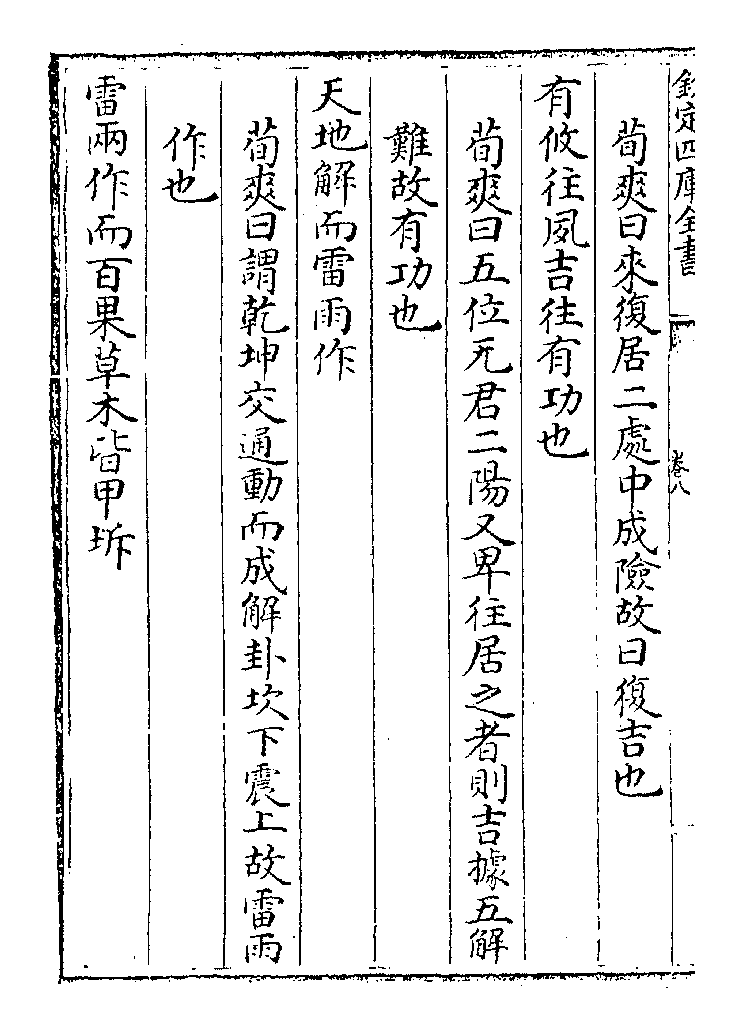 欽定四庫全書
卷八
荀爽曰來復居二處中成險故曰復吉也
有攸往夙吉往有功也
荀爽曰五位无君二陽又卑往居之者則吉據五解
難故有功也
天地解而雷雨作
荀爽曰謂乾坤交通動而成解卦坎下震上故雷雨
作也
雷雨作而百果草木皆甲坼